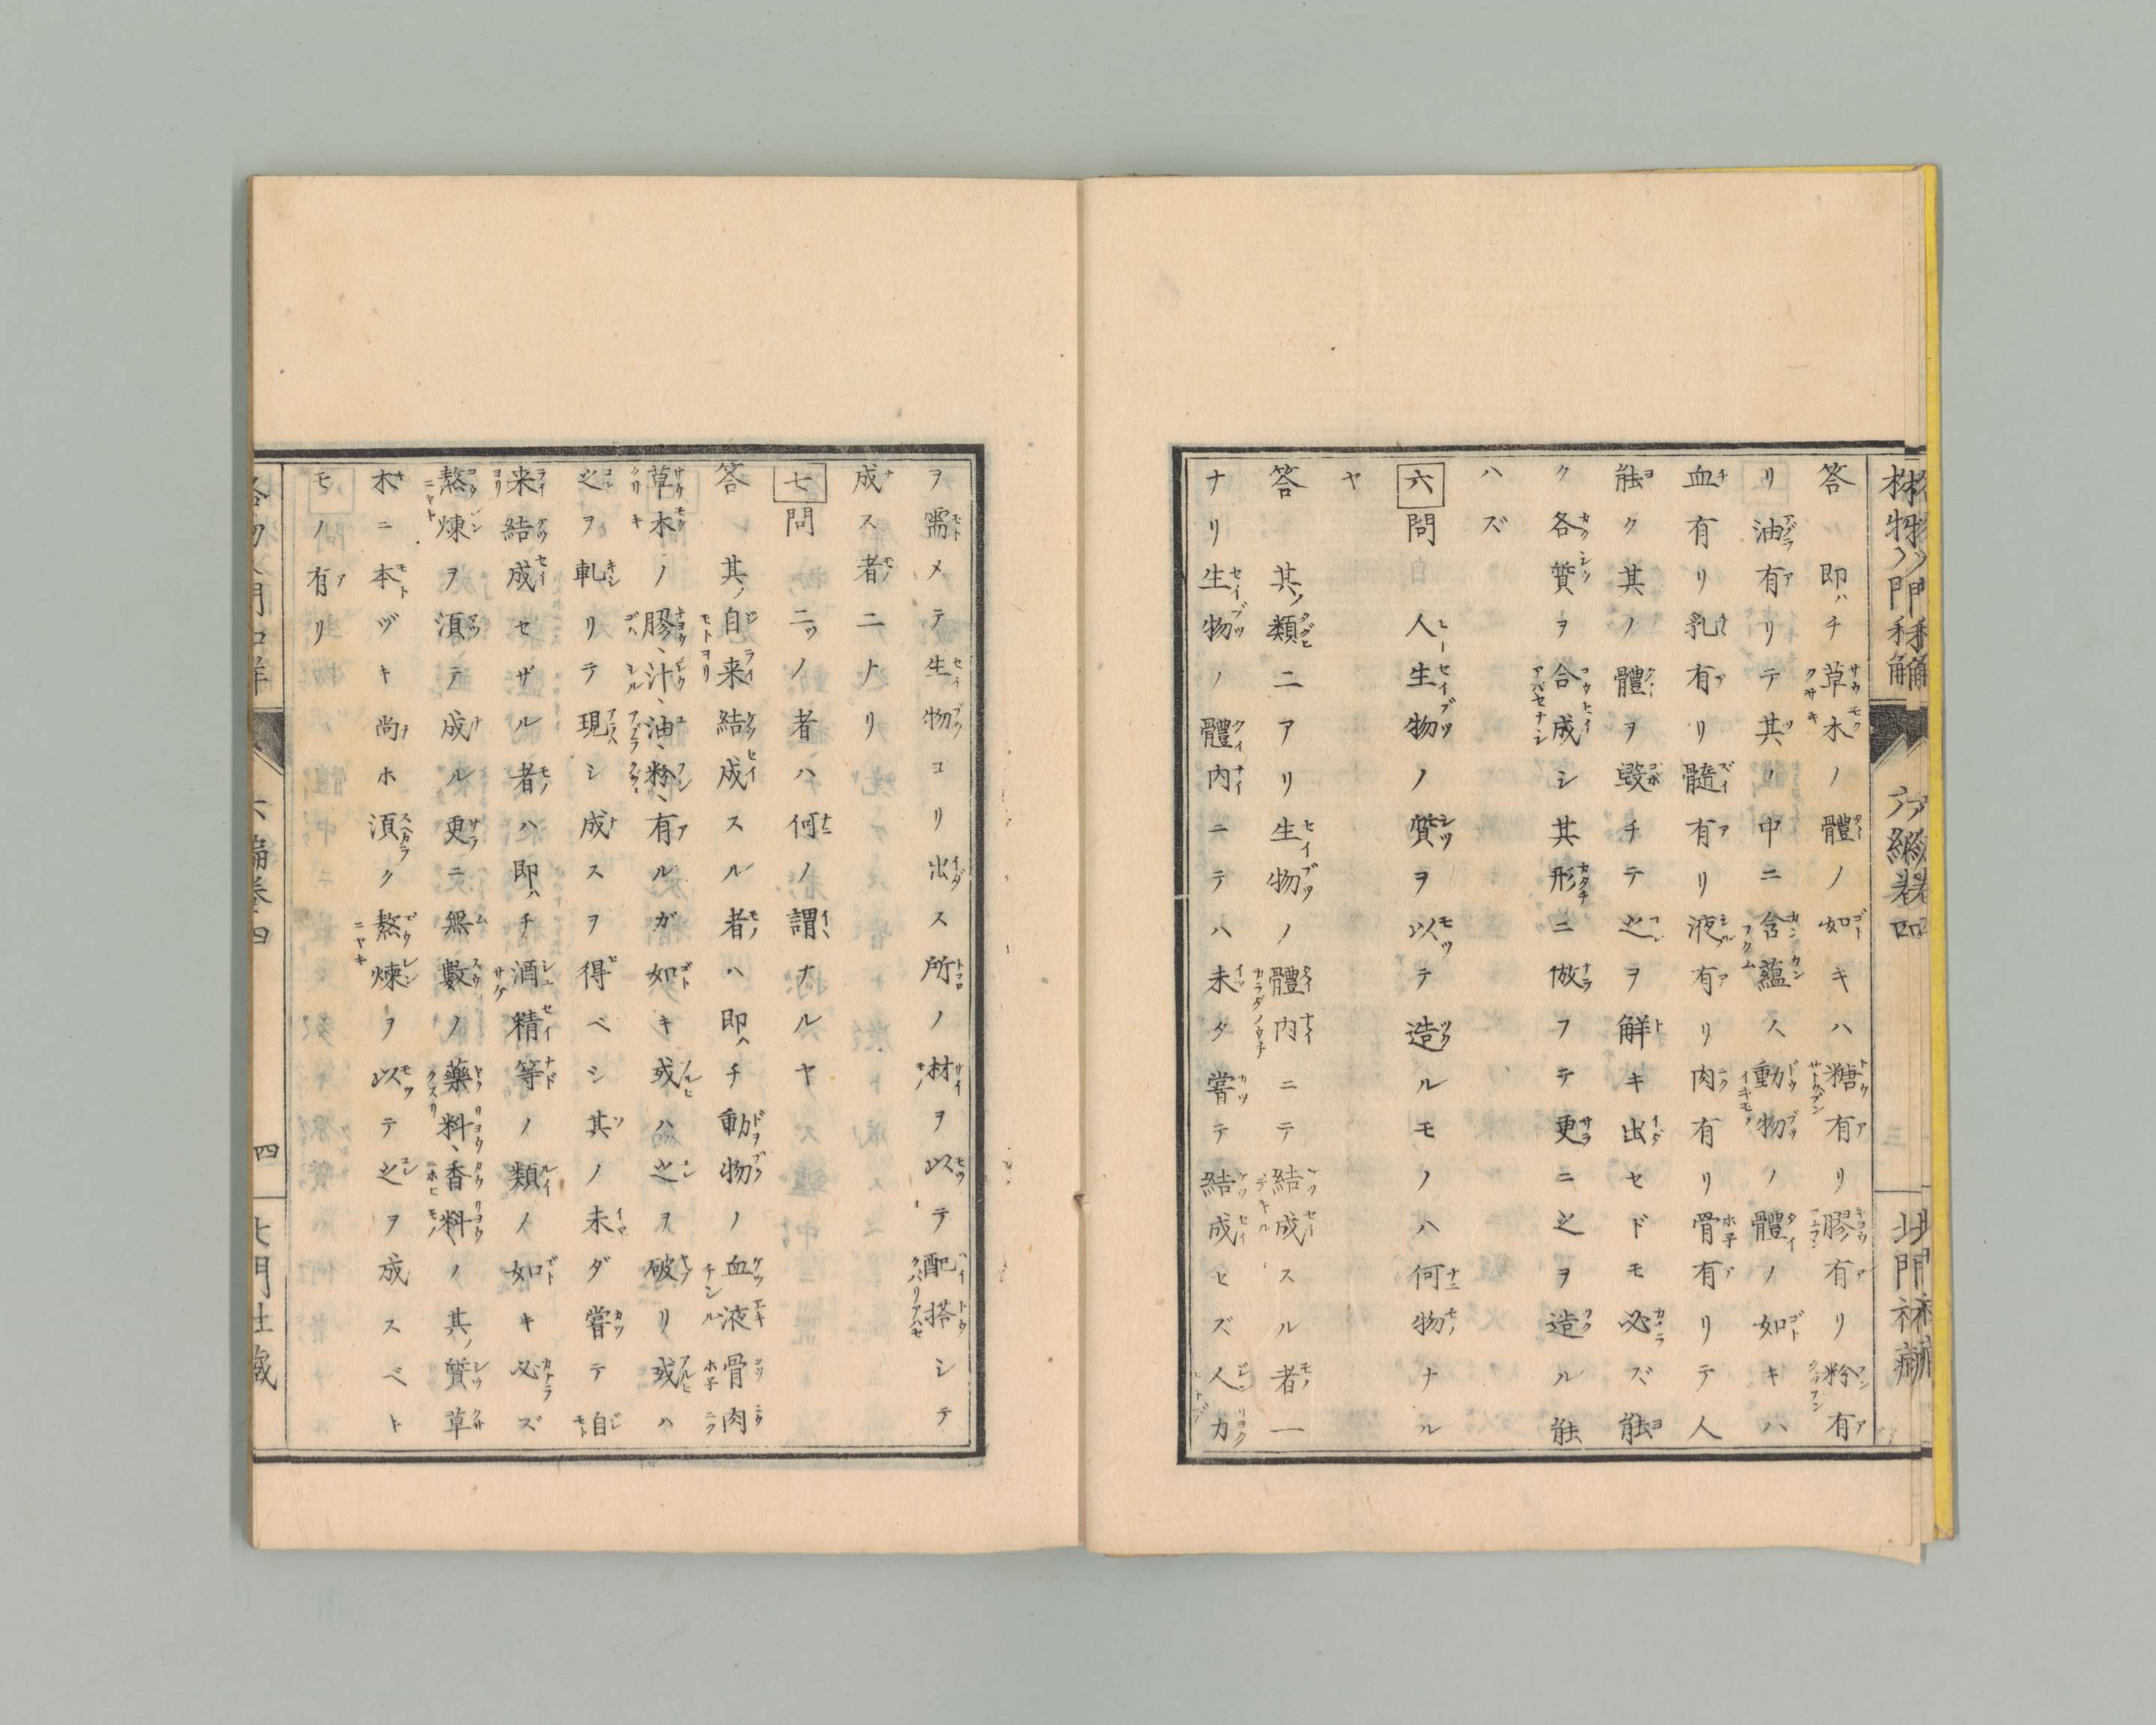 答 即ハチ草木ノ體ノ如キハ糖有リ膠有リ粉有
リ油有リテ其ノ中ニ含蘊ス動物ノ體ノ如キハ
血有リ乳有リ髓有リ液有リ肉有リ骨有リテ人
能ク其ノ體ヲ毀チテ之ヲ解キ出セドモ必ズ能
ク各質ヲ合成シ其形ニ倣フテ更ニ之ヲ造ル能
ハズ
六 問 人生物ノ質ヲ以テ造ルモノハ何物ナル
ヤ
答 其ノ類二アリ生物ノ體内ニテ結成スル者一
ナリ生物ノ體内ニテハ未タ嘗テ結成セズ人力
ヲ需メテ生物ヨリ出ス所ノ材ヲ以テ配搭シテ
成ス者二ナリ
七 問 二ツノ者ハ何ノ謂ナルヤ
答 其ノ自来結成スル者ハ即ハチ動物ノ血液骨肉
草木ノ膠、汁、油、粉、有ルガ如キ或ハ之ヲ破リ或ハ
之ヲ軋リテ現シ成スヲ得ベシ其ノ未ダ嘗テ自
来結成セザル者ハ即ハチ酒精等ノ類ノ如キ必ズ
熬煉ヲ須テ成ル更ニ無數ノ藥料、香料ノ其ノ質草
木ニ本ヅキ尚ホ須ク熬煉ヲ以テ之ヲ成スベト
モノ有リ
六編巻四
四
北門社藏